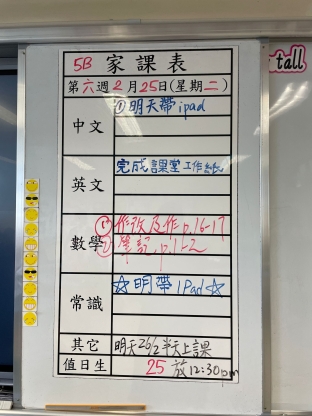 5B 家課表
tall
第六週2月25日(星期二)
中文
①明天帶ipad
英文
完成課堂工作紙
數學
①作改及作p.16-17
②筆記p.1-2
常識
☆明帶iPad☆
其它
明天26/2半天上課
值日生
25 放12:30pm